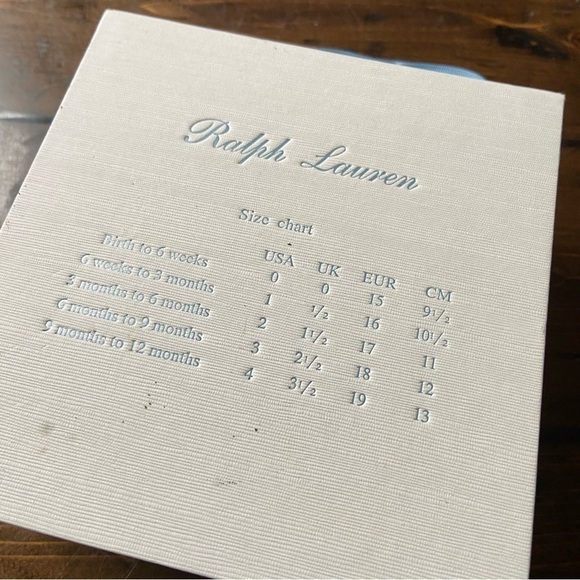 Ralph Lauren
Size chart
USA UK EUR CM
Birth to 6 weeks 0 0 15 9½
6 weeks to 3 months 1 ½ 16 10½
3 months to 6 months 2 1½ 17 11
6 months to 9 months 3 2½ 18 12
9 months to 12 months 4 3½ 19 13